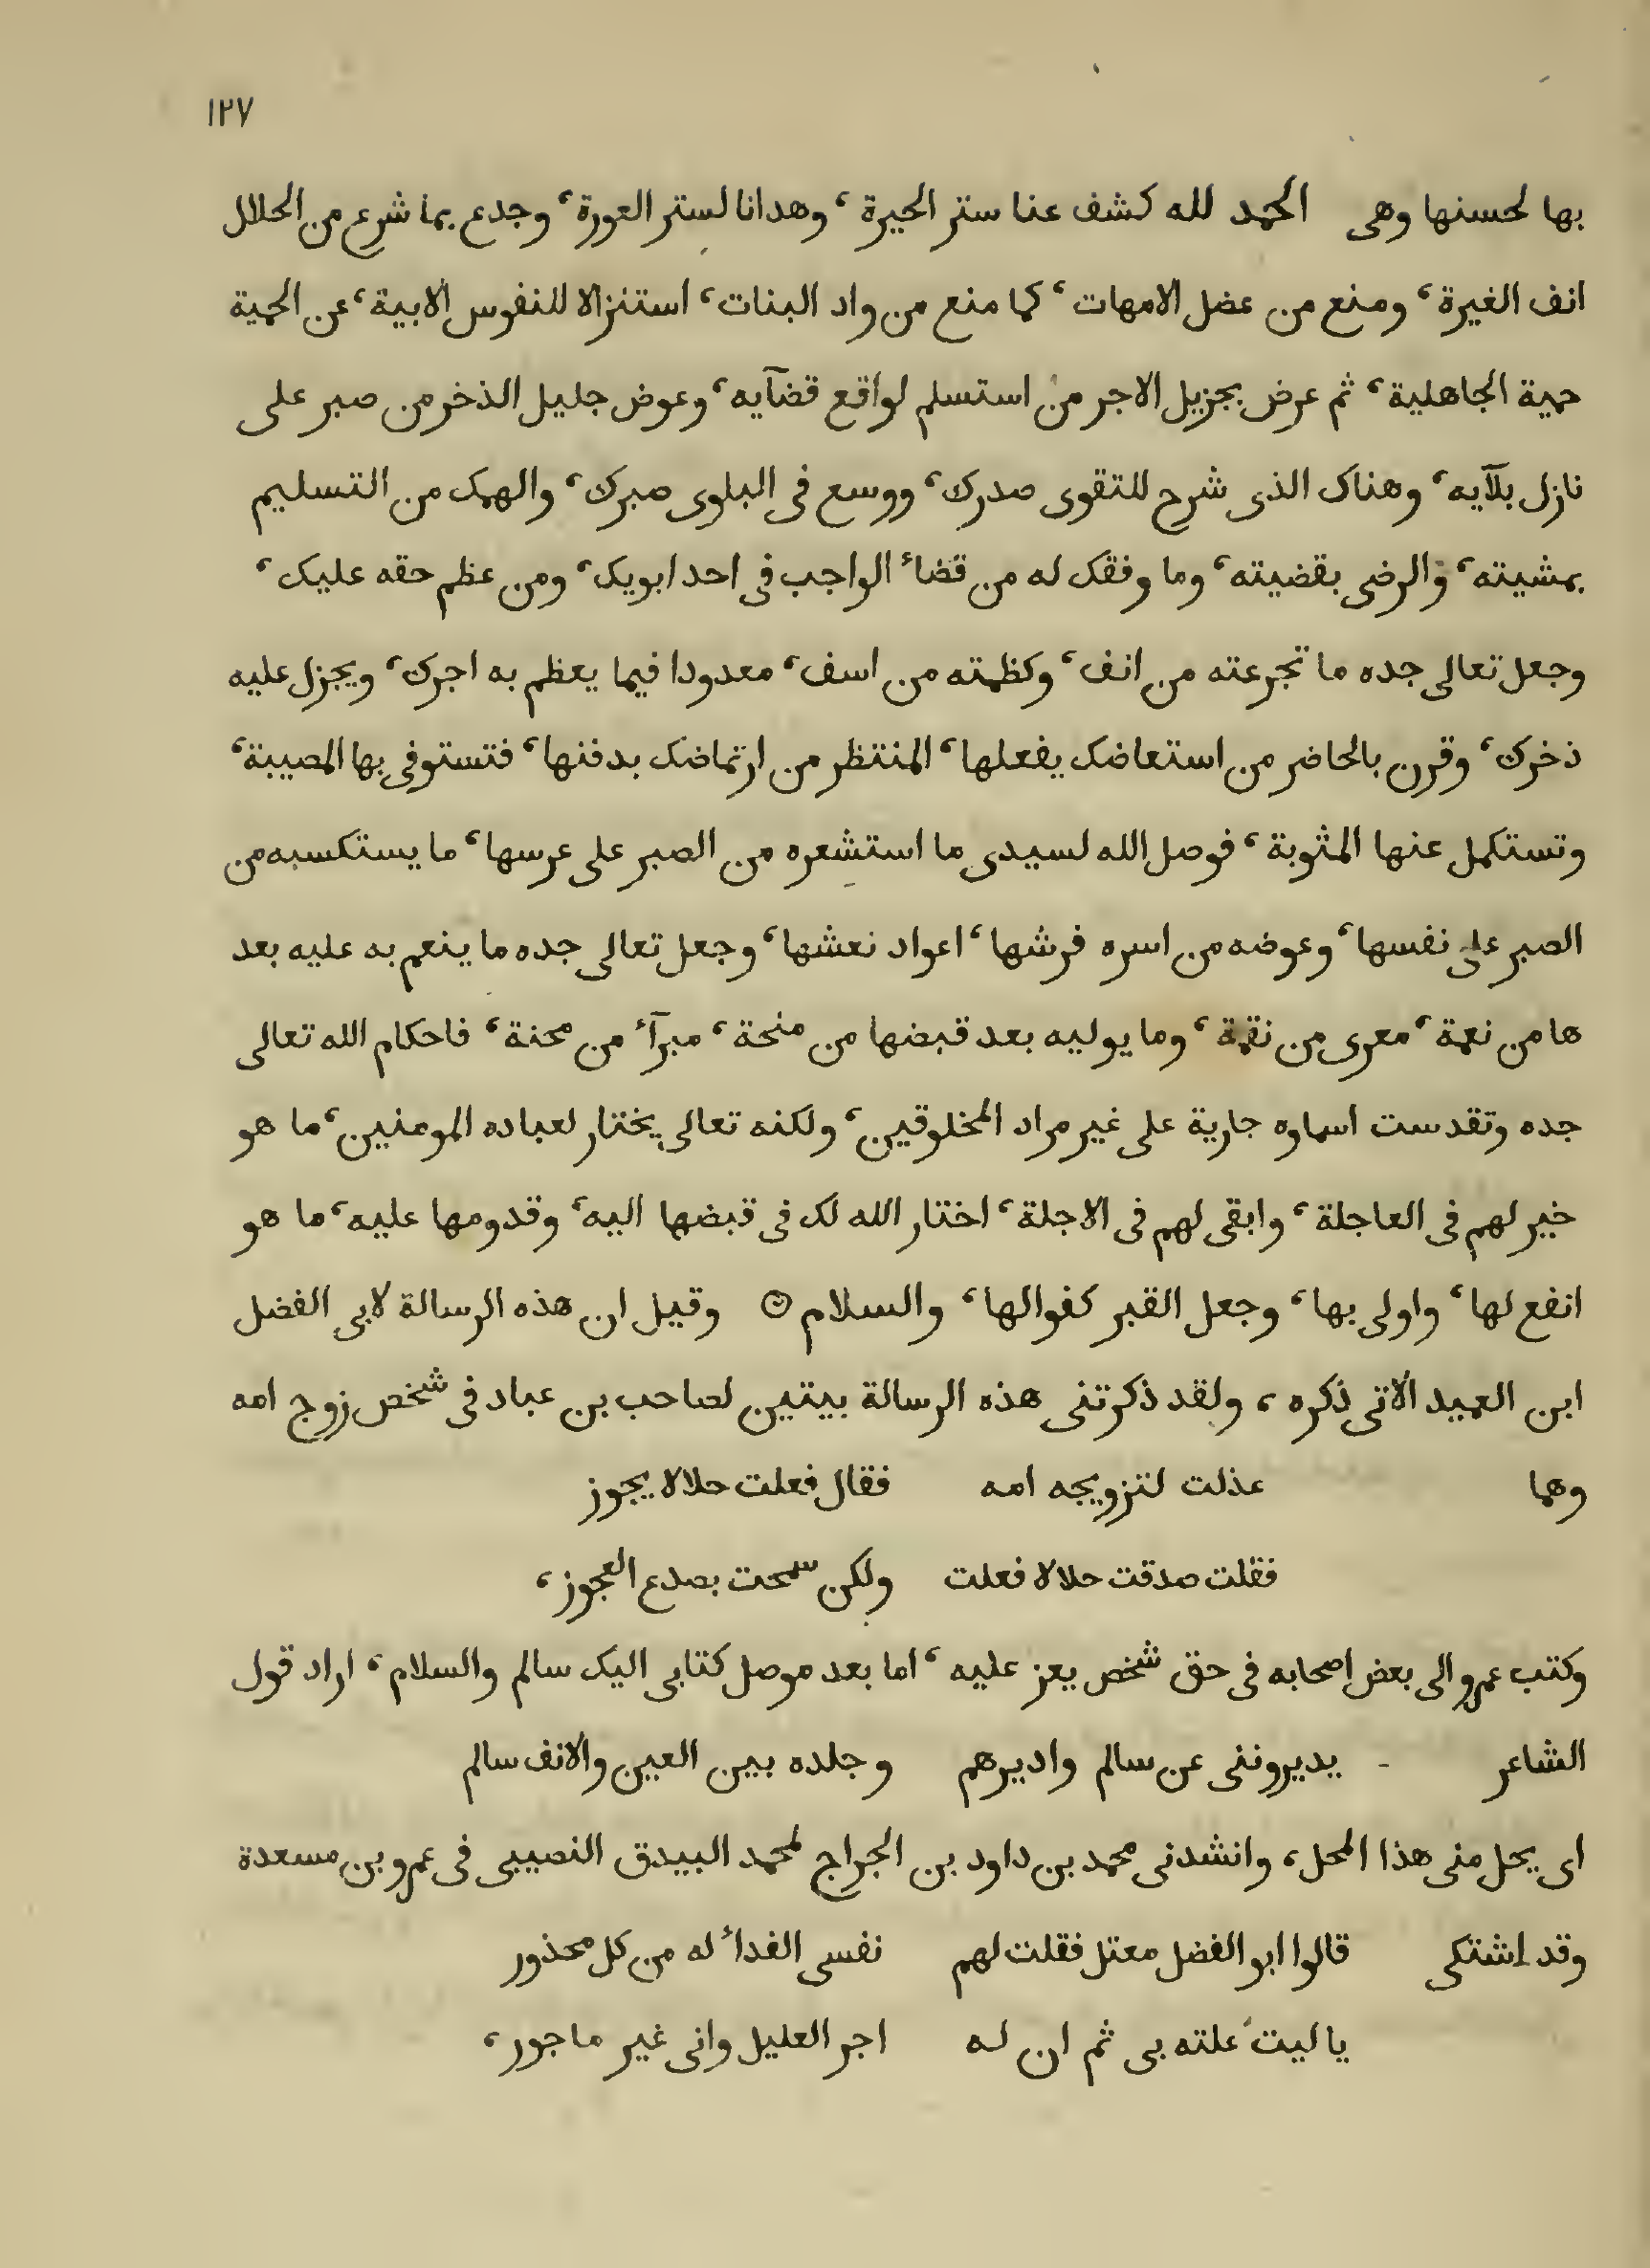 ١٢٧
بها لحسنها وهى الحمد لله كشف عنا ستر الحيرة، وهدانا لستر العورة، وجدع بما شرع من الحلال
انف الغيرة، ومنع من عضل الامهات، كما منع من واد البنات، استنزالا للنفوس الابية، عن الحمية
حمية الجاهلية، ثم عرض بجزيل الاجر من استسلم لواقع قضآيه، وعوض جليل الذخر من صبر على
نازل بلآيه، وهناك الذى شرح للتقوى صدرك، ووسع فى البلوى صبرك، والهمك من التسليم
بمشيته، والرضى بقضيته، وما وفقك له من قضاء الواجب فى احد ابويك، ومن عظم حقه عليك،
وجعل تعالى جده ما تجرعته من انف، وكظمته من اسف، معدودا فيما يعظم به اجرك، ويجزل عليه
ذخرك، وقرن بالحاضر من استعاضك يفعلها، المنتظر من ارتماضك بدفنها، فتستوفى بها المصيبة،
وتستكمل عنها المثوبة، فوصل الله لسيدى ما استشعره من الصبر على عرسها، ما يستكسبه من
الصبر على نفسها، وعوضه من اسره فرشها، اعواد نعشها، وجعل تعالى جده ما ينعم به عليه بعد
ها من نعمة، معرى من نقمة، وما يوليه بعد قبضها من منحة، مبرآء من محنة، فاحكام الله تعالى
جده وتقدست اسماوه جارية على غير مراد المخلوقين، ولكنه تعالى يختار لعباده المومنين، ما هو
خير لهم فى العاجلة، وابقى لهم فى الاجلة، اختار الله لك فى قبضها اليه، وقدومها عليه، ما هو
انفع لها، واولى بها، وجعل القبر كفوالها، والسلام وقيل ان هذه الرسالة لابى الفضل
ابن العميد الآتى ذكره، ولقد ذكرتنى هذه الرسالة بيتين لصاحب بن عباد فى شخص زوج امه
وهما عذلت لتزويجه امه فقال فعلت حلالا يجوز
فقلت صدقت حلالا فعلت ولكن سمحت بصدع العجوز،
وكتب عمرو الى بعض اصحابه فى حق شخص يعز عليه، اما بعد موصل كتابى اليك سالم والسلام، اراد قول
الشاعر - يديروننى عن سالم واديرهم وجلده بين العين والانف سالم
اى يحل منى هذا المحل، وانشدنى محمد بن داود بن الجراج لمحمد البيدق النصيبى فى عمرو بن مسعدة
وقد اشتكى قالوا ابو الفضل معتل فقلت لهم نفسى الفداء له من كل محذور
يا ليت علته بى ثم ان له اجر العليل وانى غير ماجور،